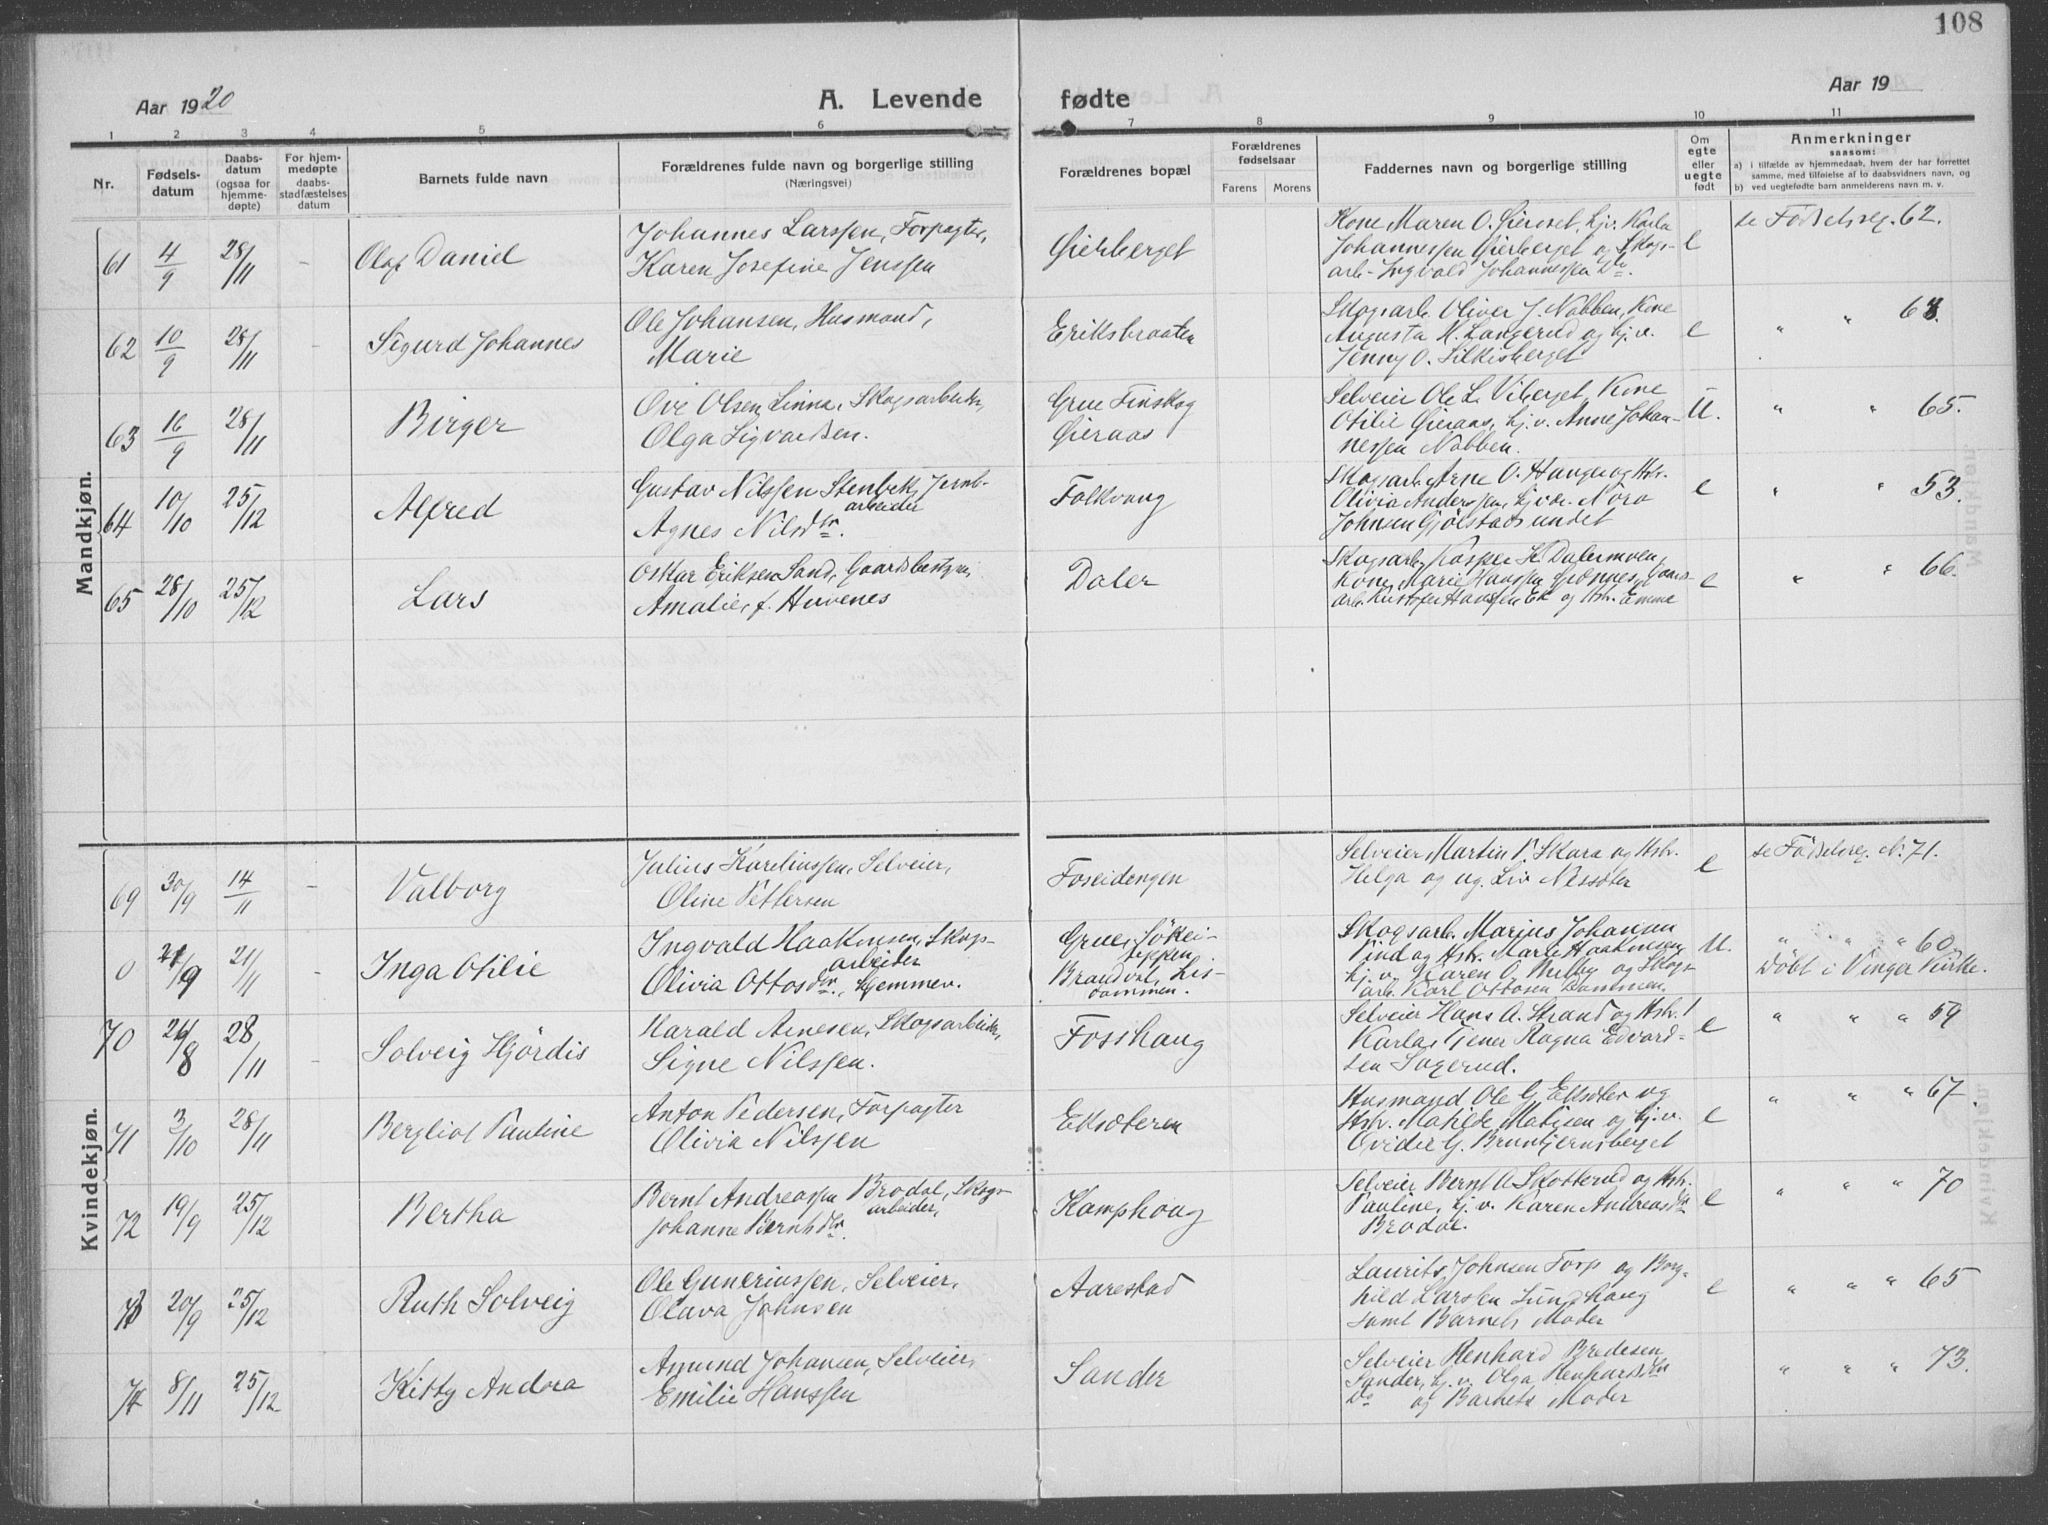 108
Aar 1920
A. Levende fødte
Aar 19
1 2 3 4 5 6 7 8 9 10 11
Nr.
Fødsels-
datum
Daabs-
datum
(ogsaa for
hjemme-
døpte)
For hjem-
medøpte
daabs-
stadfæstelses
datum
Barnets fulde navn
Forældrenes fulde navn og borgerlige stilling
(Næringsvei)
Forældrenes bopæl
Forældrenes
fødselsaar
Farens Morens
Faddernes navn og borgerlige stilling
Om
egte
eller
uegte
født
Anmerkninger
saasom:
a) i tilfælde av hjemmedaab, hvem der har forrettet
samme, med tilføielse af to daabsvidners navn, og
b) ved uegtefødte barn anmelderens navn m. v.
Mandkjøn.
61 4/9 28/11 - Olaf Daniel
Johannes Larssen, Forpagter,
Karen Josefine Jenssen
Gierberget
Kone Maren O. Gieroset, hjv. Karla
Johannessen Gierberget og Skogs-
arb. Ingvald Johannessen Do.
e
se Fødselsreg. 62.
62 10/9 28/11 - Sigurd Johannes
Ole Johansen, Husmand,
Marie
Eriksbraaten
Skogsarb. Oliver J. Nabben, Kone
Augusta M. Langerud og hj. v.
Jenny O. Silkisberget
e
" " 63.
63 16/9 28/11 Birger
Ove Olsen Linna, Skogsarbeider,
Olga Sigvardsen.
Grue Finskog
Gieraas
Selveier Ole L. Viberget, Kone
Otilie Gieraas, hj. v. Anne Johan-
nessen Nabben.
U.
" " 65.
64 10/10 25/12 Alfred
Gustav Nilssen Stenbek, Jernb-
arbeider
Agnes Nilsdtr.
Folkvang
Skogsarb. Arne O. Haugen og Hstr.
Olivia Anderssen, hj. v. Nora
Johnsen Gjølstadsundet
e
" " 53.
65 28/10 25/12 Lars
Oskar Eriksen Sand, Gaardsbestyrer,
Amalie, f. Huvenes
Daler
Skogsarb. Kasper H. Dalermoen,
Kone Marie Hanssen Grønnes, Gaards-
arb. Kristofer Hanssen Ek og Hstr. Emma
e
" " 66.
Kvindekjøn.
69 30/9 14/11 - Valborg
Julius Karelinssen, Selveier,
Oline Pettersen
Foseidengen
Selveier Martin P. Skara og Hstr.
Helga og ug. Liv Nessæter
e
se Fødselsreg. N. 71.
0 21/9 21/11 Inga Otilie
Ingvald Haakensen, Skogs-
arbeider
Olivia Ottosdtr., hjemmev.
Grue, Søkei-
seppen
Brandval, Lis-
dammen.
Skogsarb. Marius Johansen
Vind og Hstr. Marie Haakensen,
hj. v. Karen O. Melby og Skogs-
arb. Karl Ottosen Dammen.
U.
" " " 60.
Døbt i Vinger Kirke.
70 26/8 28/11 Solveig Hjørdis
Harald Arnesen, Skogsarbeider,
Signe Nilssen.
Fosshaug
Selveier Hans A. Strand og Hstr.
Karla, Tjener Ragna Edvard-
sen Sagerud.
e
" " " 59
71 3/10 28/11 Bergliot Pauline
Anton Pedersen, Forpagter
Olivia Nilssen
Eksæteren
Husmand Ole G. Eksæter og
Hstr. Matilde Matisen og hj. v.
Ovidie G. Bruntjernsberget
e
" " " 67.
72 19/9 25/12 Bertha
Bernt Andreassen Brodal, Skogs-
arbeider,
Johanne Berntsdtr.
Kamphaug
Selveier Bernt A. Skotterud og Hstr.
Pauline, hj. v. Karen Andreasdtr
Brodal.
e
" " " 70
73 20/9 25/12 Ruth Solveig
Ole Guneriussen, Selveier,
Olava Johnsen
Aarestad
Laurits Johnsen Torp og Borg-
hild Larsen Lundhaug
samt Barnets Moder
e
" " " 65
74 8/11 25/12 Kitty Andora
Amund Johansen, Selveier,
Emilie Hanssen
Sander
Selveier Renhard Bredesen
Sander, hj. v. Olga Renhardsdtr
Do og Barnets Moder
" " " 73.